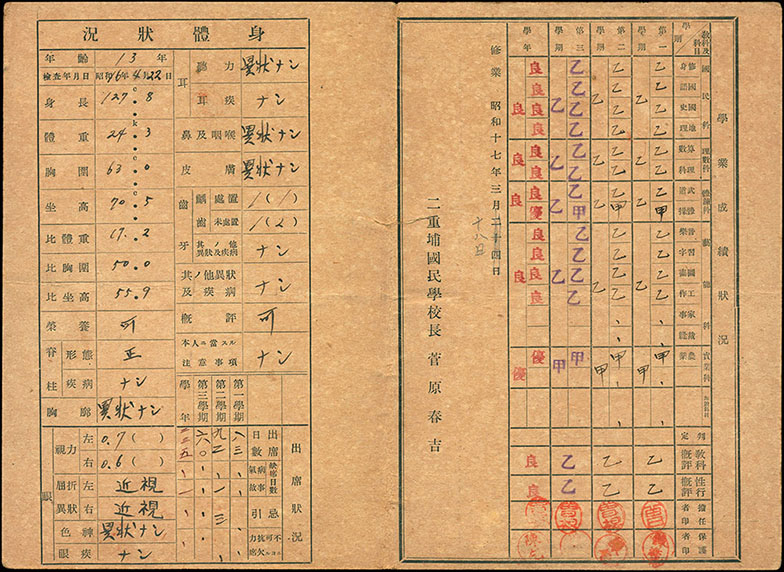 學業成績狀況
教科及科目
學期
國民科
修身
國語
國史
地理
理數科
算數
理科
體鍊科
武道
體操
藝能科
音樂
習字
圖畫
工作
家事
裁縫
實業科
農業
判定
教科概評
性行概評
擔任者印
保護者印
第一學期
乙 乙 乙 甲 乙 甲 乙 乙
第二學期
乙 乙 乙 甲 乙 甲 乙 乙
第三學期
乙 乙 乙 甲 乙 甲 乙 乙
學年
良 良 良 優 良 優 良 良
修業 昭和十七年三月二十四日
十八日
二重埔國民學校長 菅原春吉
身體狀況
年齡 13年
檢查年月日 昭和16年4月22日
身長 127.8
體重 24.3
胸圍 63.0
坐高 70.5
比體重 19.2
比胸圍 50.0
比坐高 55.9
榮養 可
脊柱 形態 正
疾病 ナシ
胸廓 異狀ナシ
眼
視力 左 0.7( )
右 0.6( )
屈折異狀 左 近視
右 近視
色神 異狀ナシ
眼疾 ナシ
耳 聽力 異狀ナシ
耳疾 ナシ
鼻及咽喉 異狀ナシ
皮膚 異狀ナシ
齒牙 齲齒 處置 1(1)
未處置 1(2)
其ノ他異狀及疾病 ナシ
其ノ他異狀及疾病 ナシ
概評 可
本人ニ當スル注意事項 ナシ
出席狀況
出席日數
缺席日數
病氣
事故
忌引
不可抗力ニヨル欠席
第一學期 八三
第二學期 九二
第三學期 六〇
學年 二三五